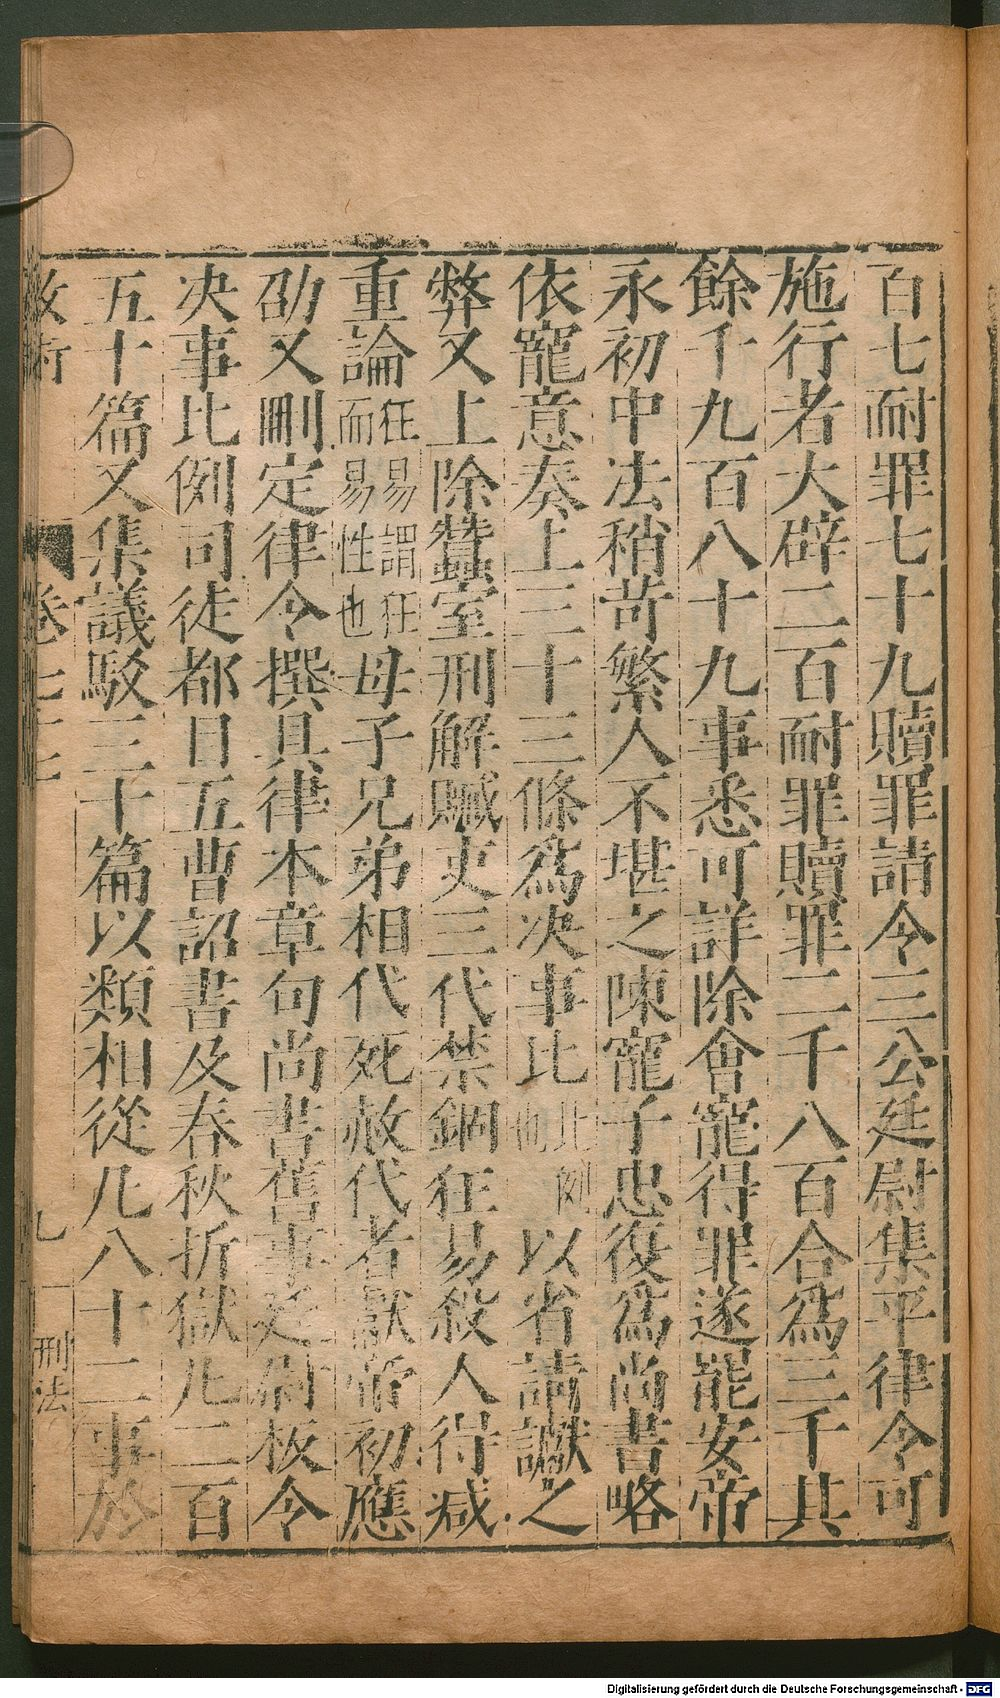 百七耐罪七十九贖罪請令三公廷尉集平律令可
施行者大辟二百耐罪贖罪二千八百合爲三千共
餘千九百八十九事悉可詳除會寵得罪遂罷安帝
永初中法稍苛繁人不堪之陳寵子忠復爲尚書略
依寵意奏上三十三條爲决事比比例也以省請讞之
弊又上除蠶室刑解贓吏三代禁錮狂易殺人得减
重論狂易謂狂而易性也母子兄弟相代死赦代者獻帝初應
劭又刪定律令撰具律本章句尚書舊事廷尉板令
决事比例司徒都目五曹詔書及春秋折獄凡二百
五十篇又集議駁三十篇以類相從凡八十二事於
卷七
九
刑法
Digitalisierung gefördert durch die Deutsche Forschungsgemeinschaft - DFG